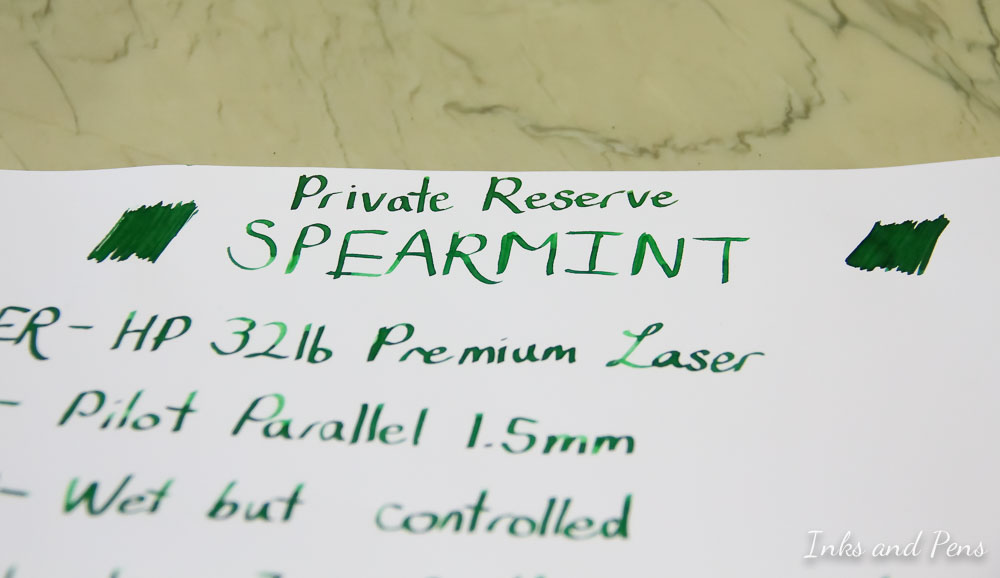 Private Reserve
SPEARMINT
ER - HP 32lb Premium Laser
- Pilot Parallel 1.5mm
- Wet but controlled
Inks and Pens